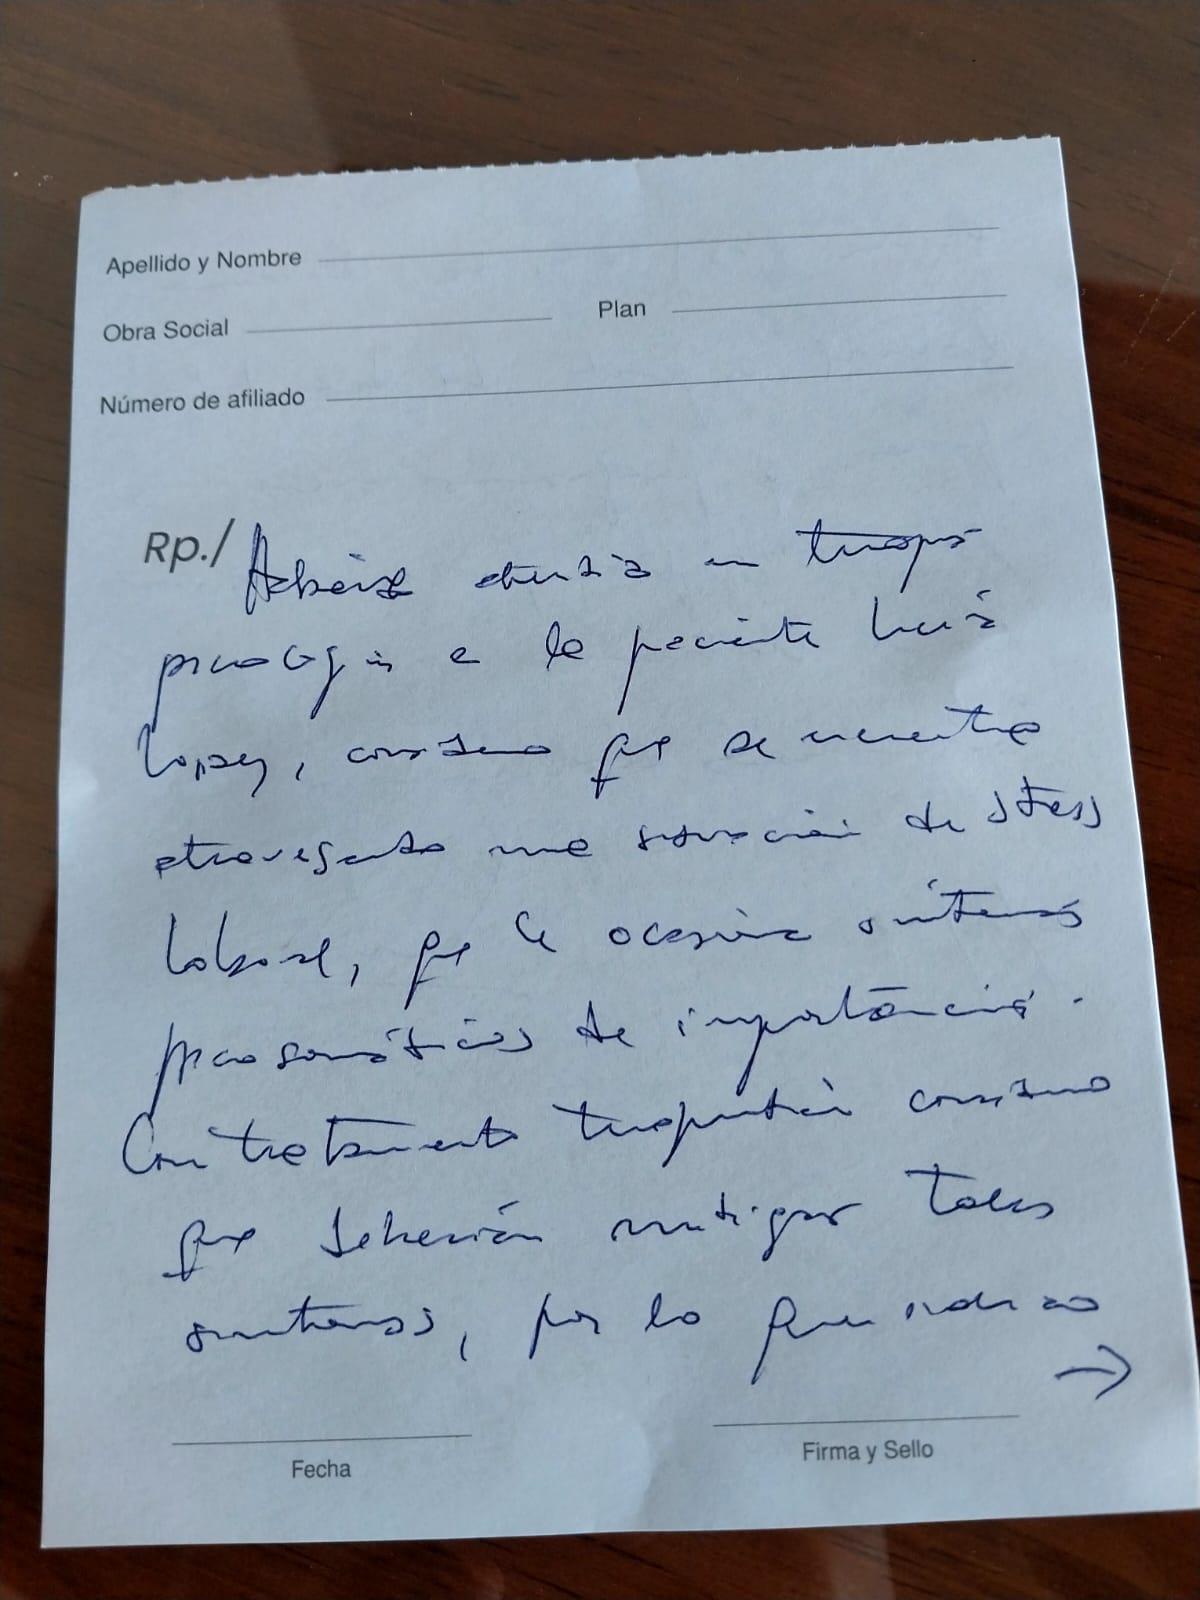 Apellido y Nombre
Obra Social Plan
Número de afiliado
Rp./ atención en terapia
psicológica a la paciente
Lopez, considero que se encuentra
atravesando una situación de stress
laboral, que le ocasiona síntomas
psicosomáticos de importancia.
Con tratamiento terapéutico considero
que deberían mitigar tales
síntomas, por lo que indico
→
Fecha
Firma y Sello